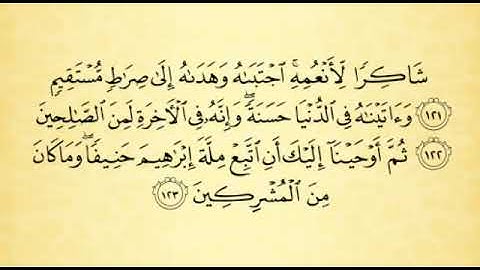 شَاكِرًا لِّأَنْعُمِهِ ۚ ٱجْتَبَىٰهُ وَهَدَىٰهُ إِلَىٰ صِرَٰطٍ مُّسْتَقِيمٍ
١٢١ وَءَاتَيْنَٰهُ فِى ٱلدُّنْيَا حَسَنَةً ۖ وَإِنَّهُۥ فِى ٱلْأَخِرَةِ لَمِنَ ٱلصَّٰلِحِينَ
١٢٢ ثُمَّ أَوْحَيْنَآ إِلَيْكَ أَنِ ٱتَّبِعْ مِلَّةَ إِبْرَٰهِيمَ حَنِيفًا ۖ وَمَا كَانَ
مِنَ ٱلْمُشْرِكِينَ ١٢٣